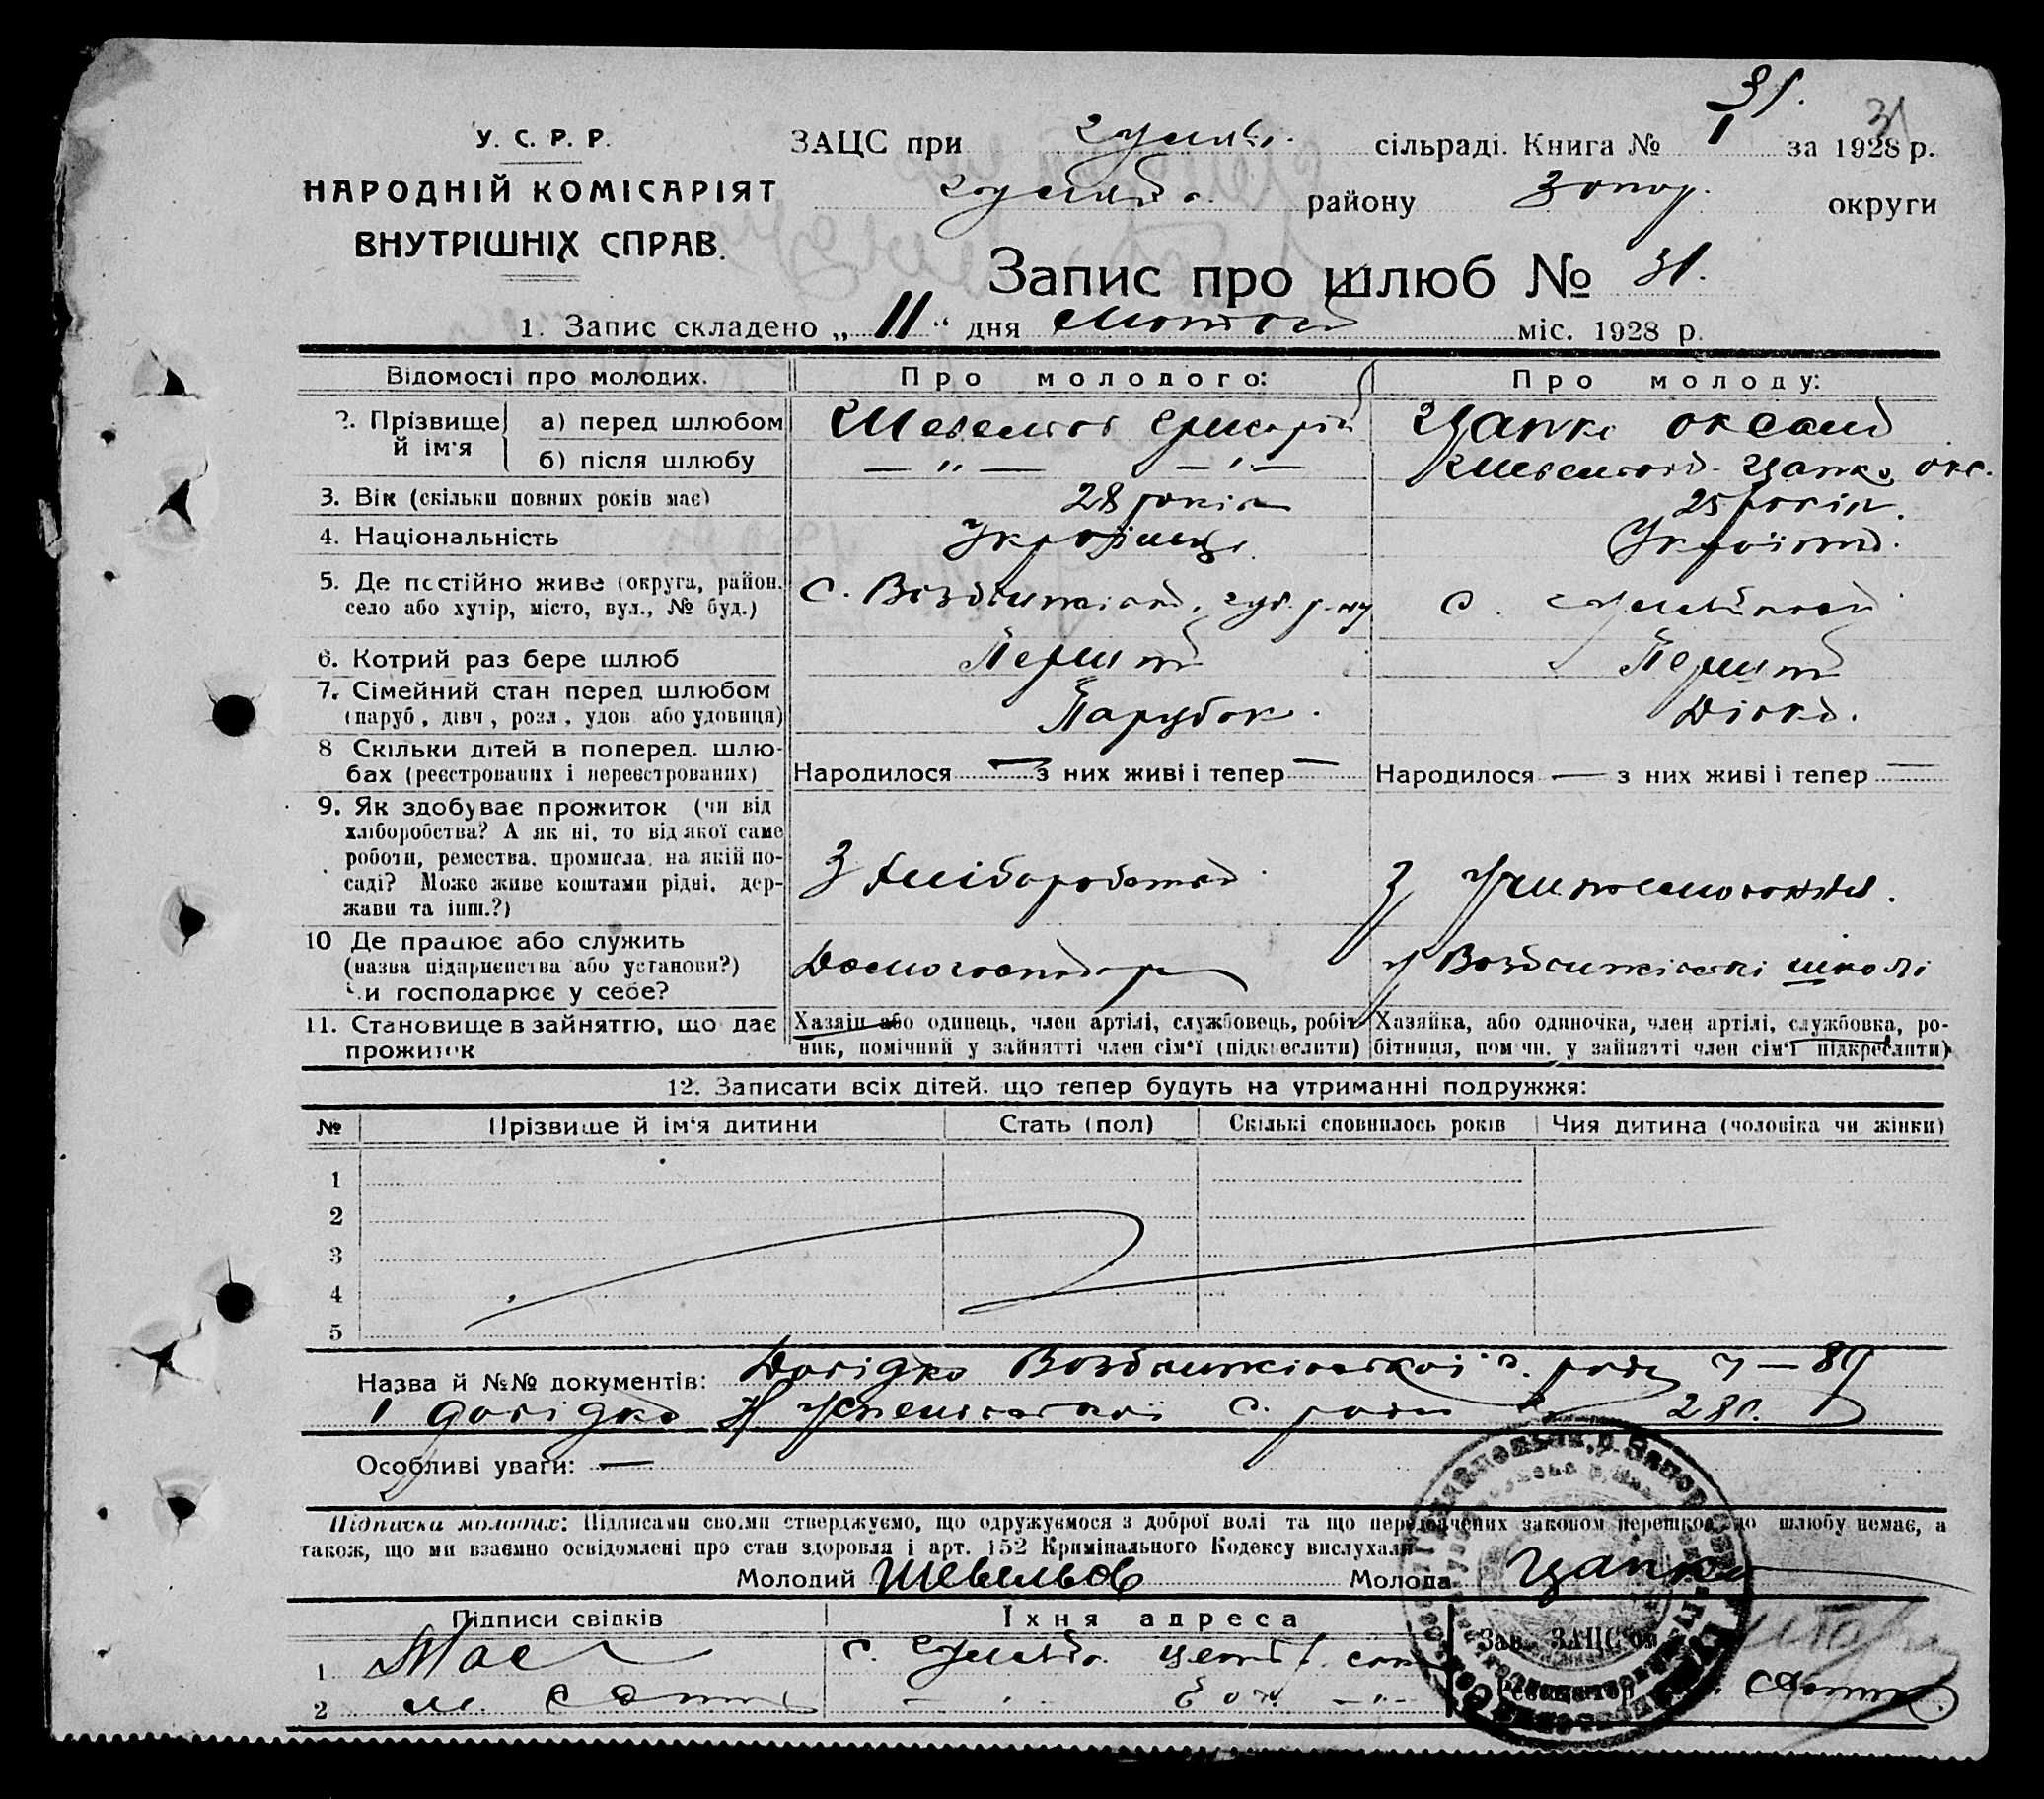 31.
31
У. С. Р. Р.
НАРОДНІЙ КОМІСАРІЯТ
ВНУТРІШНІХ СПРАВ.
ЗАЦС при сільраді. Книга № 1 за 1928 р.
району Запор. округи
Запис про шлюб № 31.
1. Запис складено „ 11 “ дня Лютого міс. 1928 р.
Відомості про молодих. Про молодого: Про молоду:
2. Прізвище й ім'я а) перед шлюбом Шевельов Григорій Цапко Оксана
б) після шлюбу — „ — — „ — Шевельова-Цапко Окс.
3. Вік (скільки повних років має) 28 років 25 років.
4. Національність Українець Українка.
5. Де постійно живе (округа, район, село або хутір, місто, вул., № буд.) с. Воздвижівка, гул. р-ну с.
6. Котрий раз бере шлюб Перший Перший
7. Сімейний стан перед шлюбом (паруб., дівч., розл., удов. або удовиця) Парубок. Дівка.
8 Скільки дітей в поперед. шлюбах (реєстрованих і нереєстрованих) Народилося — з них живі і тепер — Народилося — з них живі і тепер —
9. Як здобуває прожиток (чи від хліборобства? А як ні, то від якої саме роботи, ремества, промисла, на якій посаді? Може живе коштами рідні, держави та інш.?) З хліборобства З учителювання.
10 Де працює або служить (назва підприємства або установи?) Чи господарює у себе? Домогосподар у Воздвижівські школі
11. Становище в зайняттю, що дає прожиток Хазяїн або одинець, член артілі, службовець, робітник, помічний у зайнятті член сім'ї (підкреслити) Хазяйка, або одиночка, член артілі, службовка, робітниця, помічн. у зайнятті член сім'ї (підкреслити)
12. Записати всіх дітей, що тепер будуть на утриманні подружжя:
№ Прізвище й ім'я дитини Стать (пол) Скількі сповнилось років Чия дитина (чоловіка чи жінки)
1
2
3
4
5
Назва й №№ документів: Довідка Воздвижівської с. ради — 89
і довідка Успенівської с. ради 281.
Особливі уваги: —
Підписка молодих: Підписами своїми стверджуємо, що одружуємося з доброї волі та що передбачених законом перешкод до шлюбу немає, а
також, що ми взаємно освідомлені про стан здоровля і арт. 152 Кримінального Кодексу вислухали
Молодий Шевельов Молода Цапко
Підписи свідків Їхня адреса
1 с.
2
Зав. ЗАЦС'ом
Реєстратор